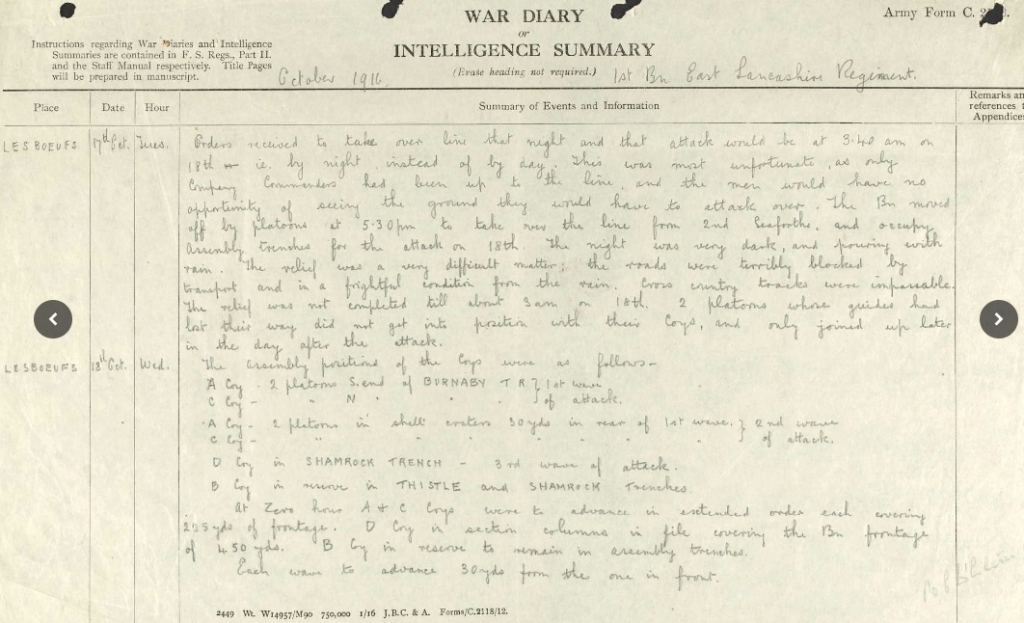 WAR DIARY
or
INTELLIGENCE SUMMARY
(Erase heading not required.)
Army Form C.
Instructions regarding War Diaries and Intelligence
Summaries are contained in F. S. Regs., Part II.
and the Staff Manual respectively. Title Pages
will be prepared in manuscript.
October 1916. 1st Bn East Lancashire Regiment.
Place Date Hour Summary of Events and Information Remarks an
references t
Appendices
LES BOEUFS 17th Oct. Tues. Orders received to take over line that night and that attack would be at 3.40 am on
18th - ie. by night instead of by day. This was most unfortunate, as only
Company Commanders had been up to the line, and the men would have no
opportunity of seeing the ground they would have to attack over. The Bn moved
off by platoons at 5.30pm to take over the line from 2nd Seaforths, and occupy
Assembly trenches for the attack on 18th. The night was very dark, and pouring with
rain. The relief was a very difficult matter; the roads were terribly blocked by
transport and in a frightful condition from the rain. Cross country tracks were impassable.
The relief was not completed till about 3am on 18th. 2 platoons whose guides had
lost their way did not get into position with their Coys, and only joined up later
in the day after the attack.
LESBOEUFS 18th Oct. Wed. The assembly positions of the Coys were as follows-
A Coy - 2 platoons S. end of BURNABY TR } 1st wave
C Coy - " N " " " } of attack.
A Coy - 2 platoons in shell craters 30yds in rear of 1st wave. } 2nd wave
C Coy - " " " " " " " } of attack.
D Coy in SHAMROCK TRENCH - 3rd wave of attack.
B Coy in reserve in THISTLE and SHAMROCK Trenches.
At Zero hour A & C Coys were to advance in extended order each covering
225 yds of frontage. D Coy in section columns in file covering the Bn frontage
of 450 yds. B Coy in reserve to remain in assembly trenches.
Each wave to advance 30yds from the one in front.
2449 Wt. W14957/M90 750,000 1/16 J.B.C. & A. Forms/C.2118/12.